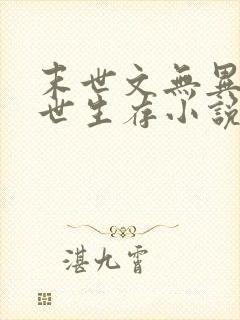 末世文無異
世生存小說
湛九霄